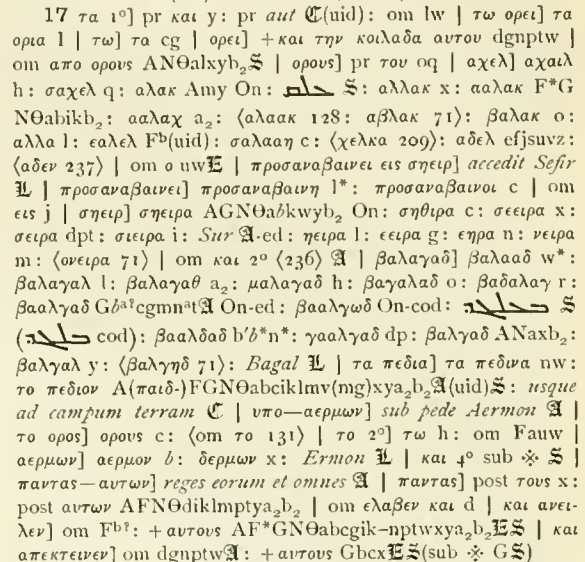 17 τα 1º] pr και y: pr aut ℭ(uid): om lw | τω ορει] τα
ορια l | τω] τα cg | ορει] +και την κοιλαδα αυτου dgnptw |
om απο ορους ANΘalxyb₂𝕾 | ορους] pr του oq | αχελ] αχαιλ
h: σαχελ q: αλακ Amy On: 𝕾: αλλακ x: ααλακ F*G
NΘabikb₂: ααλαχ a₂: ⟨αλαακ 128: αβλακ 71⟩: βαλακ o:
αλλα l: εαλελ Fᵇ(uid): σαλααη c: ⟨χελκα 209⟩: αδελ efjsuvz:
⟨αδεν 237⟩ | om o uw𝕰 | προσαναβαινει εις σηειρ] accedit Sefir
𝕷 | προσαναβαινει] προσαναβαινη l*: προσαναβαινοι c | om
εις j | σηειρ] σηειρα AGNΘabkwyb₂ On: σηθιρα c: σεειρα x:
σειρα dpt: σιειρα i: Sur 𝕬-ed: ηειρα l: εειρα g: εηρα n: νειρα
m: ⟨ονειρα 71⟩ | om και 2º ⟨236⟩ 𝕬 | βαλαγαδ] βαλααδ w*:
βαλαγαλ l: βαλαγαθ a₂: μαλαγαδ h: βαγαλαδ o: βαδαλαγ r:
βααλγαδ Gbᵃ?cgmnᵃt𝕬 On-ed: βααλγωδ On-cod: 𝕾
( cod): βααλδαδ b′b*n*: γααλγαδ dp: βαλγαδ ANaxb₂:
βαλγαλ y: ⟨βαλγηδ 71⟩: Bagal 𝕷 | τα πεδια] τα πεδινα nw:
το πεδιον A(παιδ-)FGNΘabciklmv(mg)xya₂b₂𝕬(uid)𝕾: usque
ad campum terram ℭ | υπο—αερμων] sub pede Aermon 𝕬 |
το ορος] ορους c: ⟨om το 131⟩ | το 2º] τω h: om Fauw |
αερμων] αερμον b: δερμων x: Ermon 𝕷 | και 4º sub ※ 𝕾 |
παντας—αυτων] reges eorum et omnes 𝕬 | παντας] post τους x:
post αυτων AFNΘdiklmptya₂b₂ | om ελαβεν και d | και ανει-
λεν] om Fᵇ?: +αυτους AF*GNΘabcgik–nptwxya₂b₂𝕰𝕾 | και
απεκτεινεν] om dgnptw𝕬: +αυτους Gbcx𝕰𝕾(sub ※ G𝕾)